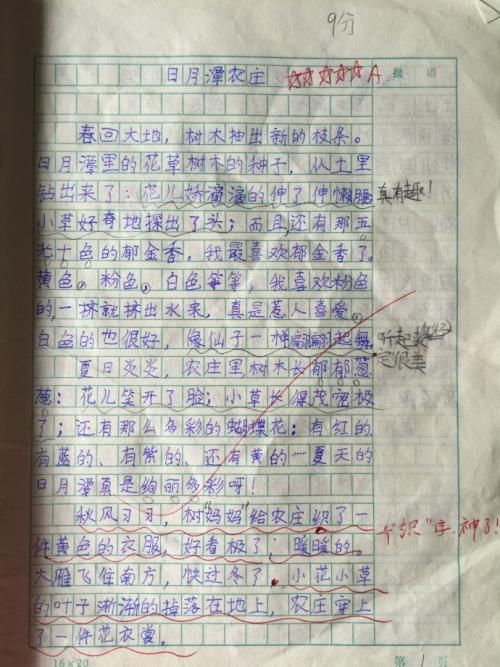 9分
日月潭农庄 A 批语
春回大地，树木抽出新的枝条。
日月潭里的花草树木的种子，从土里
钻出来了：花儿娇滴滴的伸了伸懒腰 真有趣！
小草好奇地探出了头；而且还有那五
光十色的郁金香，我最喜欢郁金香了。
黄色，粉色，白色等等，我喜欢粉色
的，一挤就抹出水来，真是惹人喜爱。
白色的也很好，像仙子一样翩翩起舞 听起来
夏日炎炎，农庄里树木长郁郁葱 定很美
葱：花儿笑开了脸；小草长得茂密极
了；还有那么多彩的蝴蝶花：有红的
有蓝的、有紫的、还有黄的……夏天的
日月潭真是绚丽多彩呀！
秋风习习，树“妈妈”给农庄织了一 个“织”字，神了！
件黄色的衣服，好看极了；暖暖的。
大雁飞住南方，快过冬了。小花小草
的叶子渐渐的掉落在地上，农庄穿上
了一件花衣裳。
16×20 第1页